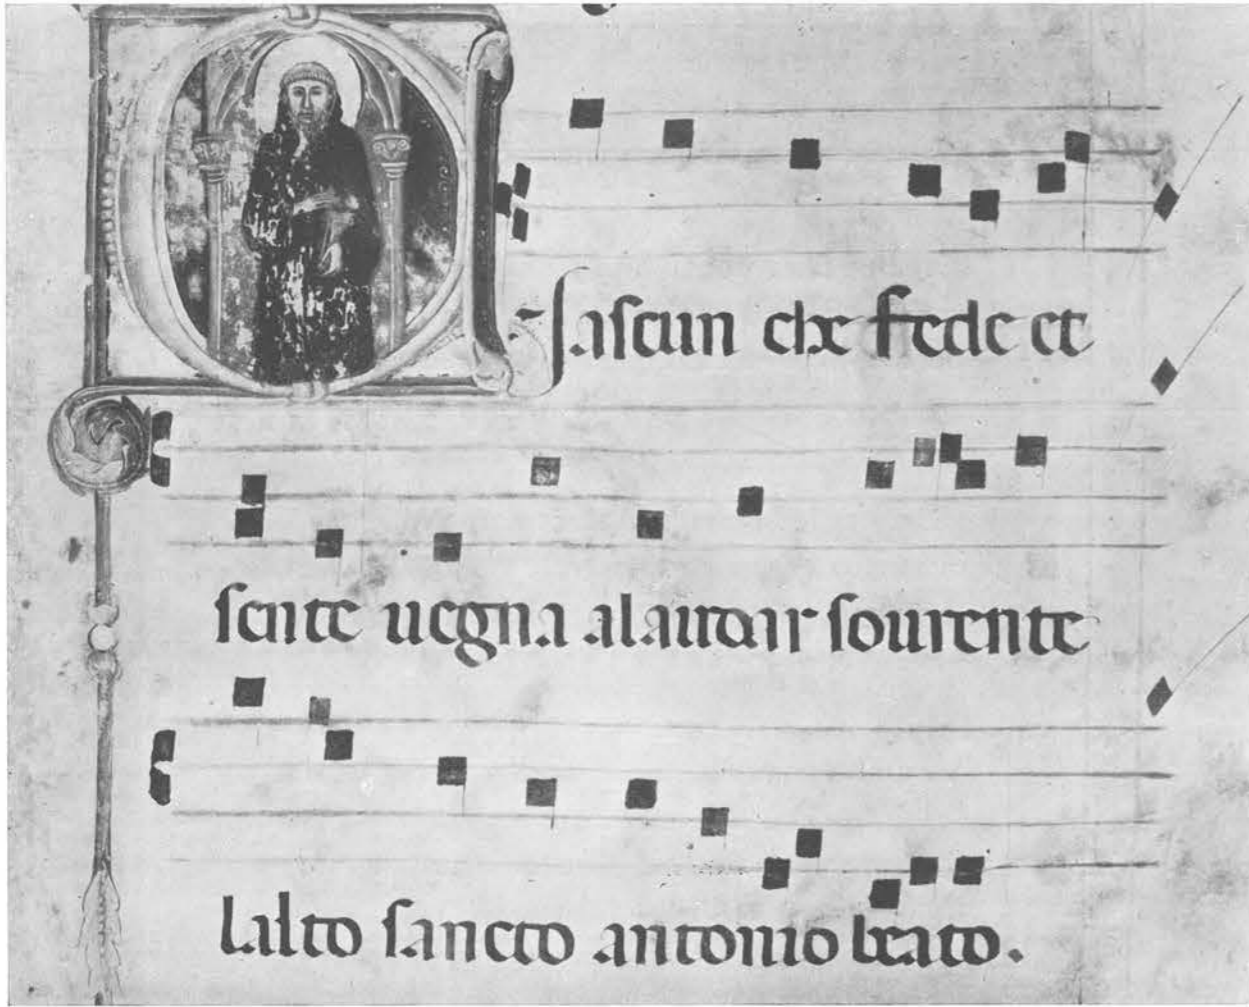 Ciascun che fede et
sente uegna alaudar sourente
lalto sancto antonio beato.